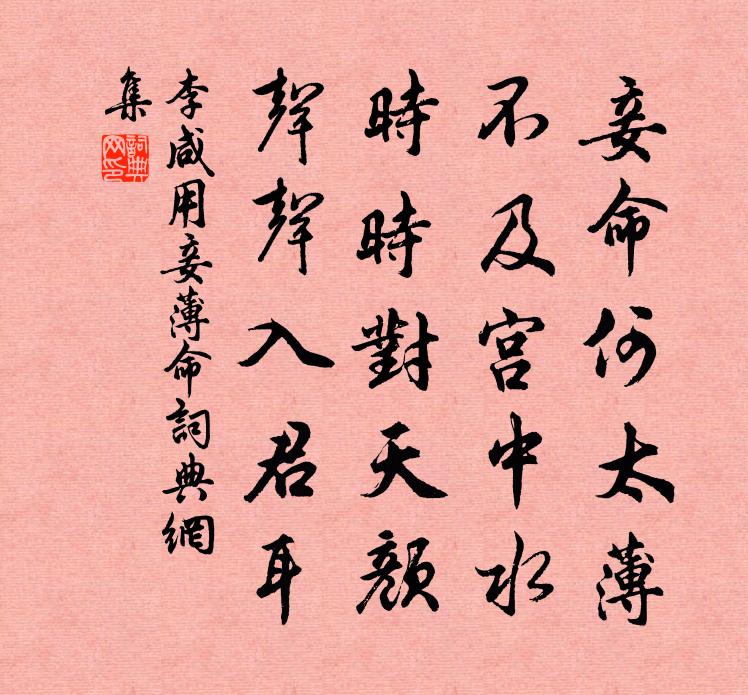 妾命何太薄
不及宮中水
時時對天顏
聲聲入君耳
李咸用妾薄命詞典網
集
詞典
网印